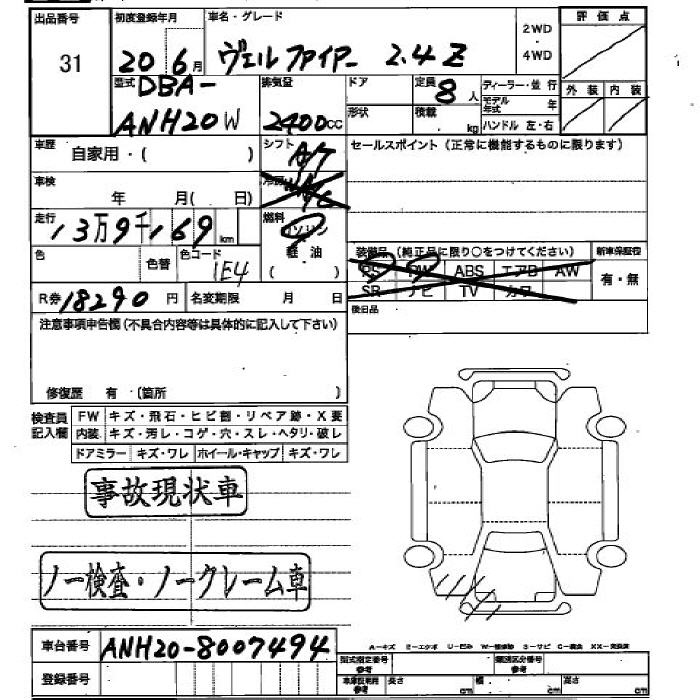 出品番号 31
初度登録年月 20 6月
車名・グレード ヴェルファイアー 2.4 Z
2WD・4WD
評価点
外装 内装
型式 DBA-ANH20W
排気量 2400cc
ドア
形状
定員 8人
積載 kg
ディーラー・並行
モデル年式 年
ハンドル 左・右
車歴 自家用・( )
シフト A/T
冷房
セールスポイント(正常に機能するものに限ります)
車検 年 月( 日)
走行 13万9千169km
燃料 ガソリン 軽油 ( )
色 色替 色コード 1E4
装備品(純正品に限り○をつけてください)
PS PW ABS エアB AW
SR ナビ TV カワ
新車保証役
有・無
R券 18290円
名変期限 月 日
後日品
注意事項申告欄(不具合内容等は具体的に記入して下さい)
修復歴 有(箇所 )
検査員記入欄
FW キズ・飛石・ヒビ割・リペア跡・X要
内装 キズ・汚レ・コゲ・穴・スレ・ヘタリ・破レ
ドアミラー キズ・ワレ ホイール・キャップ キズ・ワレ
事故現状車
ノー検査・ノークレーム車
車台番号 ANH20-8007494
登録番号
型式指定番号 参考
類別区分番号 参考
車庫証明用 参考 長さ cm 幅 cm 高さ cm